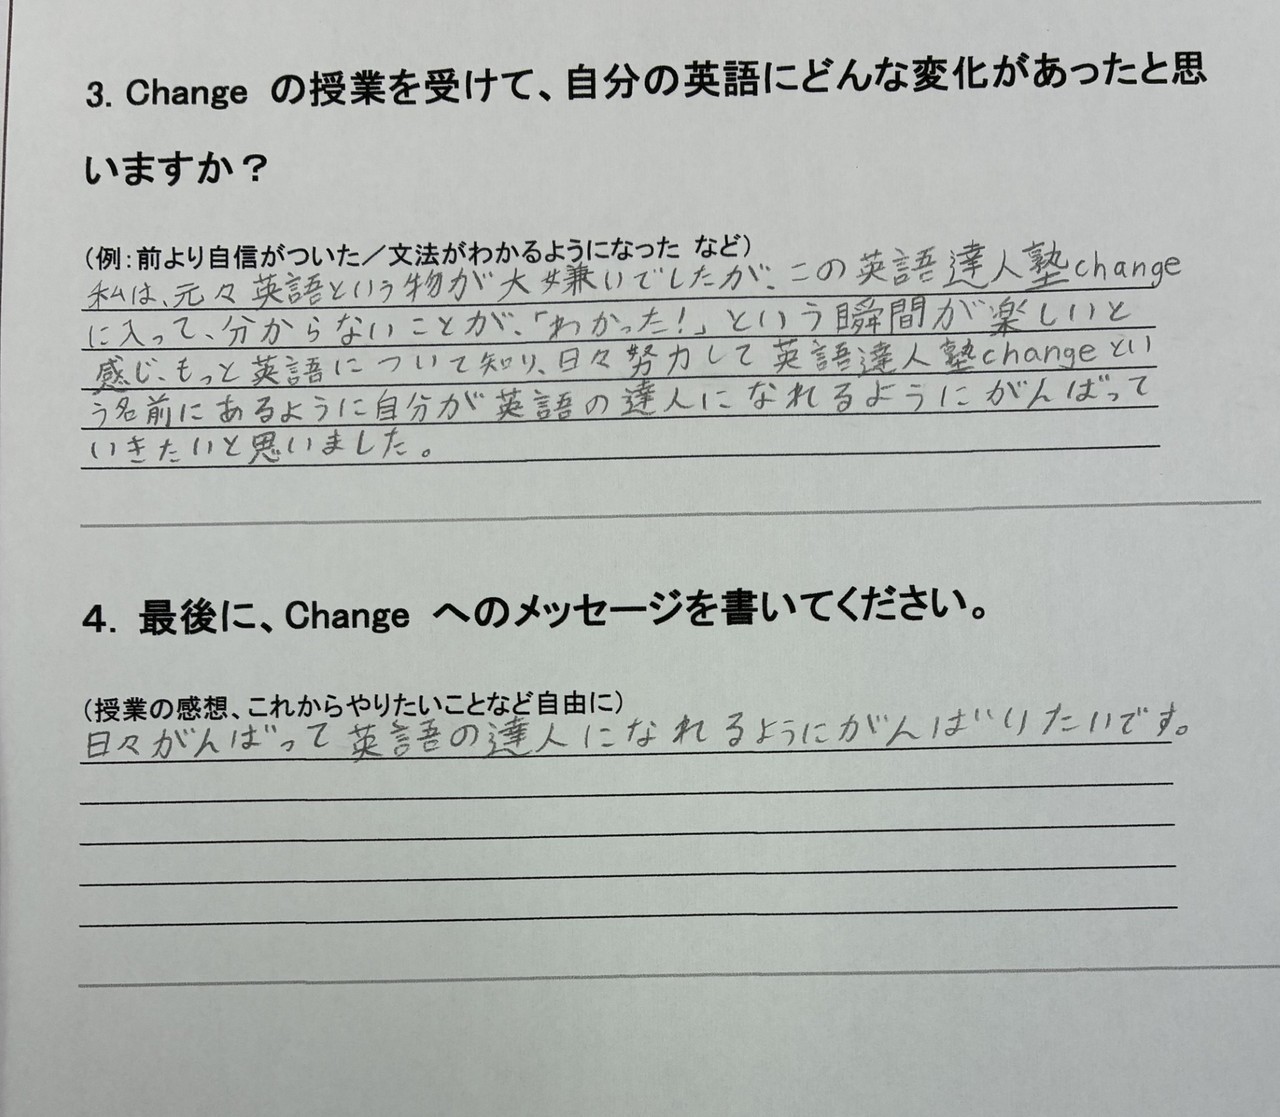 3. Change の授業を受けて、自分の英語にどんな変化があったと思
いますか？
（例：前より自信がついた／文法がわかるようになった など）
私は、元々英語という物が大嫌いでしたが、この英語達人塾change
に入って、分からないことが、「わかった!」という瞬間が楽しいと
感じ、もっと英語について知り、日々努力して英語達人塾changeとい
う名前にあるように自分が英語の達人になれるようにがんばって
いきたいと思いました。
4. 最後に、Change へのメッセージを書いてください。
（授業の感想、これからやりたいことなど自由に）
日々がんばって英語の達人になれるようにがんばりたいです。